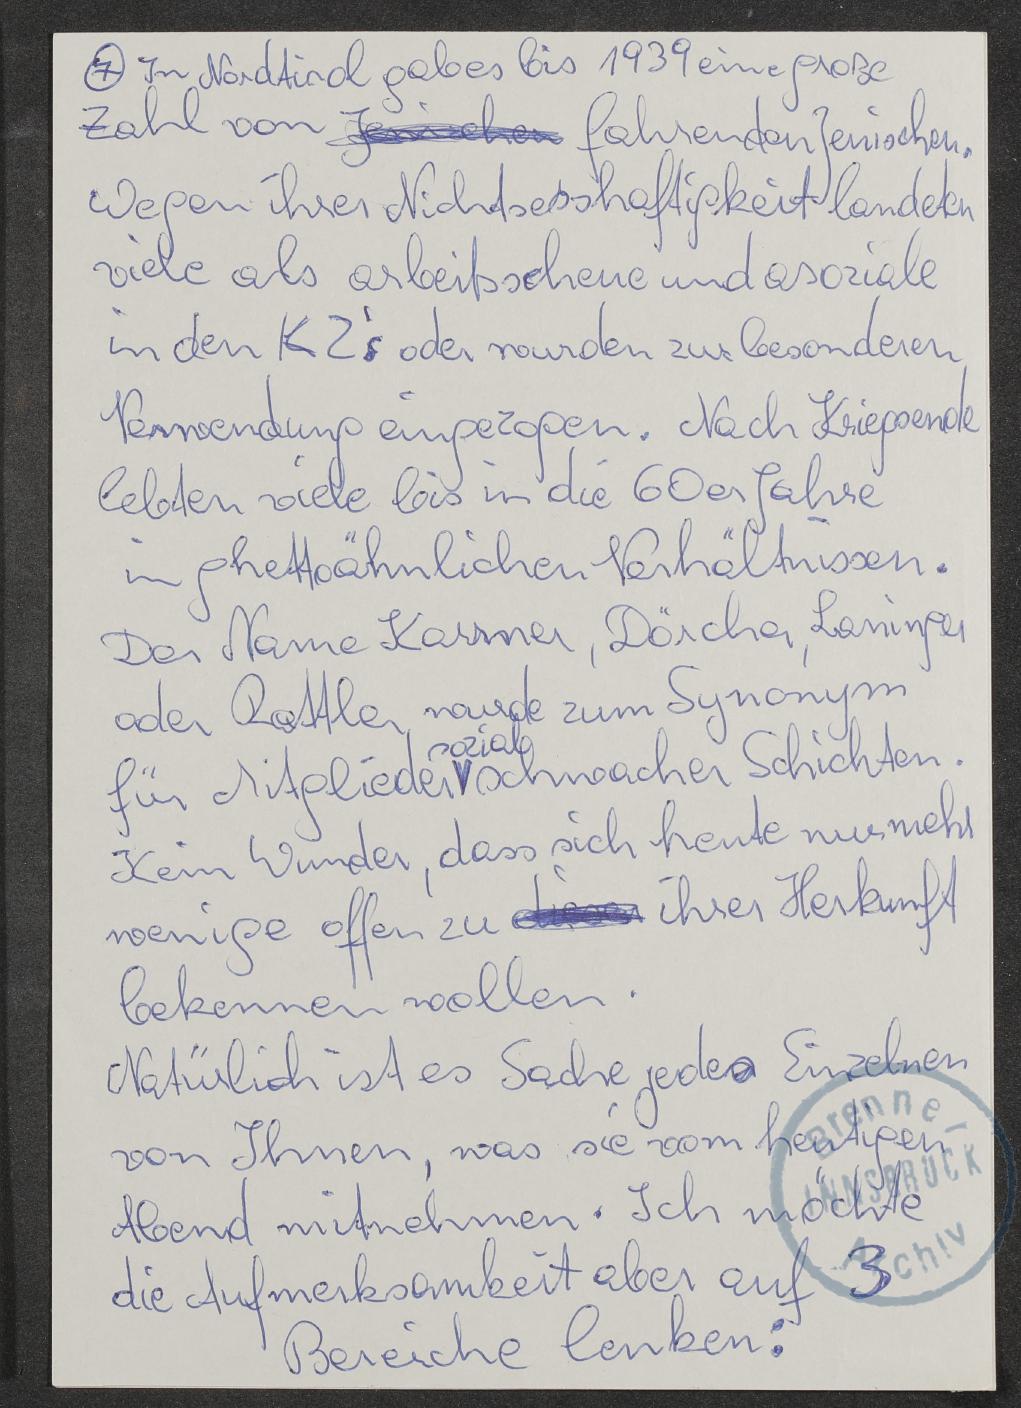 ⑦ In Nordtirol gab es bis 1939 eine große
Zahl von Jenischen fahrenden Jenischen.
Wegen ihrer Nichtsesshaftigkeit landeten
viele als arbeitsscheue und asoziale
in den KZ's oder wurden zur besonderen
Verwendung eingezogen. Nach Kriegsende
lebten viele bis in die 60er Jahre
in ghettoähnlichen Verhältnissen.
Der Name Karrner, Dörcher, Laninger
oder Rattler wurde zum Synonym
sozial
für Mitglieder schwacher Schichten.
Kein Wunder, dass sich heute nurmehr
wenige offen zu dieser ihrer Herkunft
bekennen wollen.
Natürlich ist es Sache jedes Einzelnen
von Ihnen, was sie vom heutigen
Abend mitnehmen. Ich möchte
die Aufmerksamkeit aber auf 3
Bereiche lenken:
Brenner
INNSBRUCK
Archiv